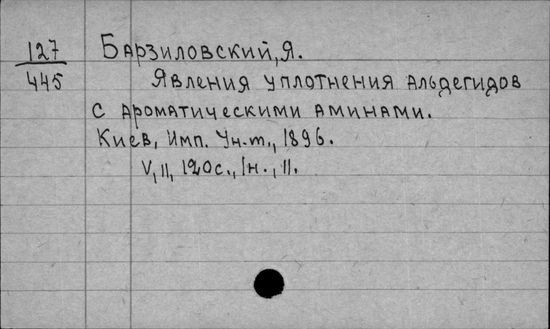 127
445
Барзиловский, Я.
Явления уплотнения альдегидов
с ароматическими аминами.
Киев, Имп. Ун-т., 1896.
V, II, 120с., 1н., II.